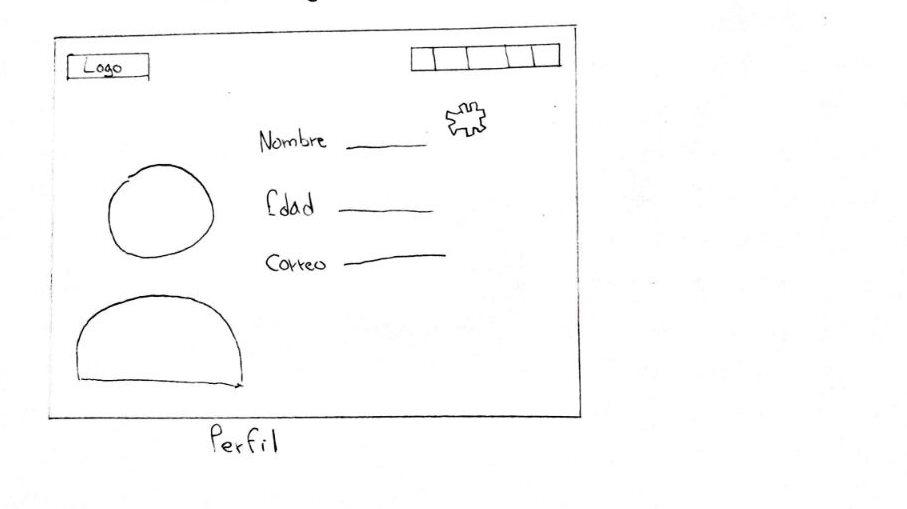 Logo
Nombre
Edad
Correo
Perfil